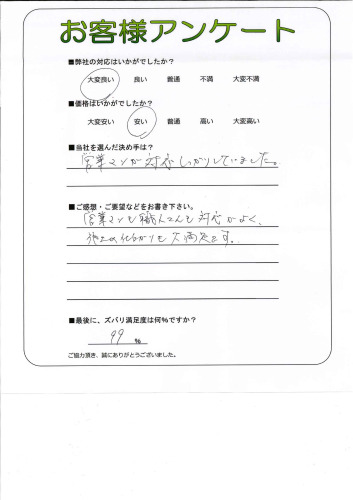 お客様アンケート
■弊社の対応はいかがでしたか？
大変良い 良い 普通 不満 大変不満
■価格はいかがでしたか？
大変安い 安い 普通 高い 大変高い
■当社を選んだ決め手は？
営業マンが対応しっかりしていました。
■ご感想・ご要望などをお書き下さい。
営業マンも職人さんも対応がよく、
仕上がりも大満足です。
■最後に、ズバリ満足度は何％ですか？
99 ％
ご協力頂き、誠にありがとうございました。